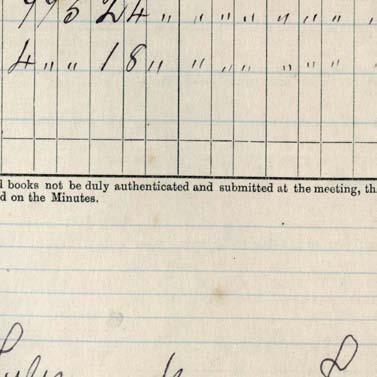 995 24 " " " " " " "
4 " " 18 " " " " " " "
d books not be duly authenticated and submitted at the meeting, th
d on the Minutes.